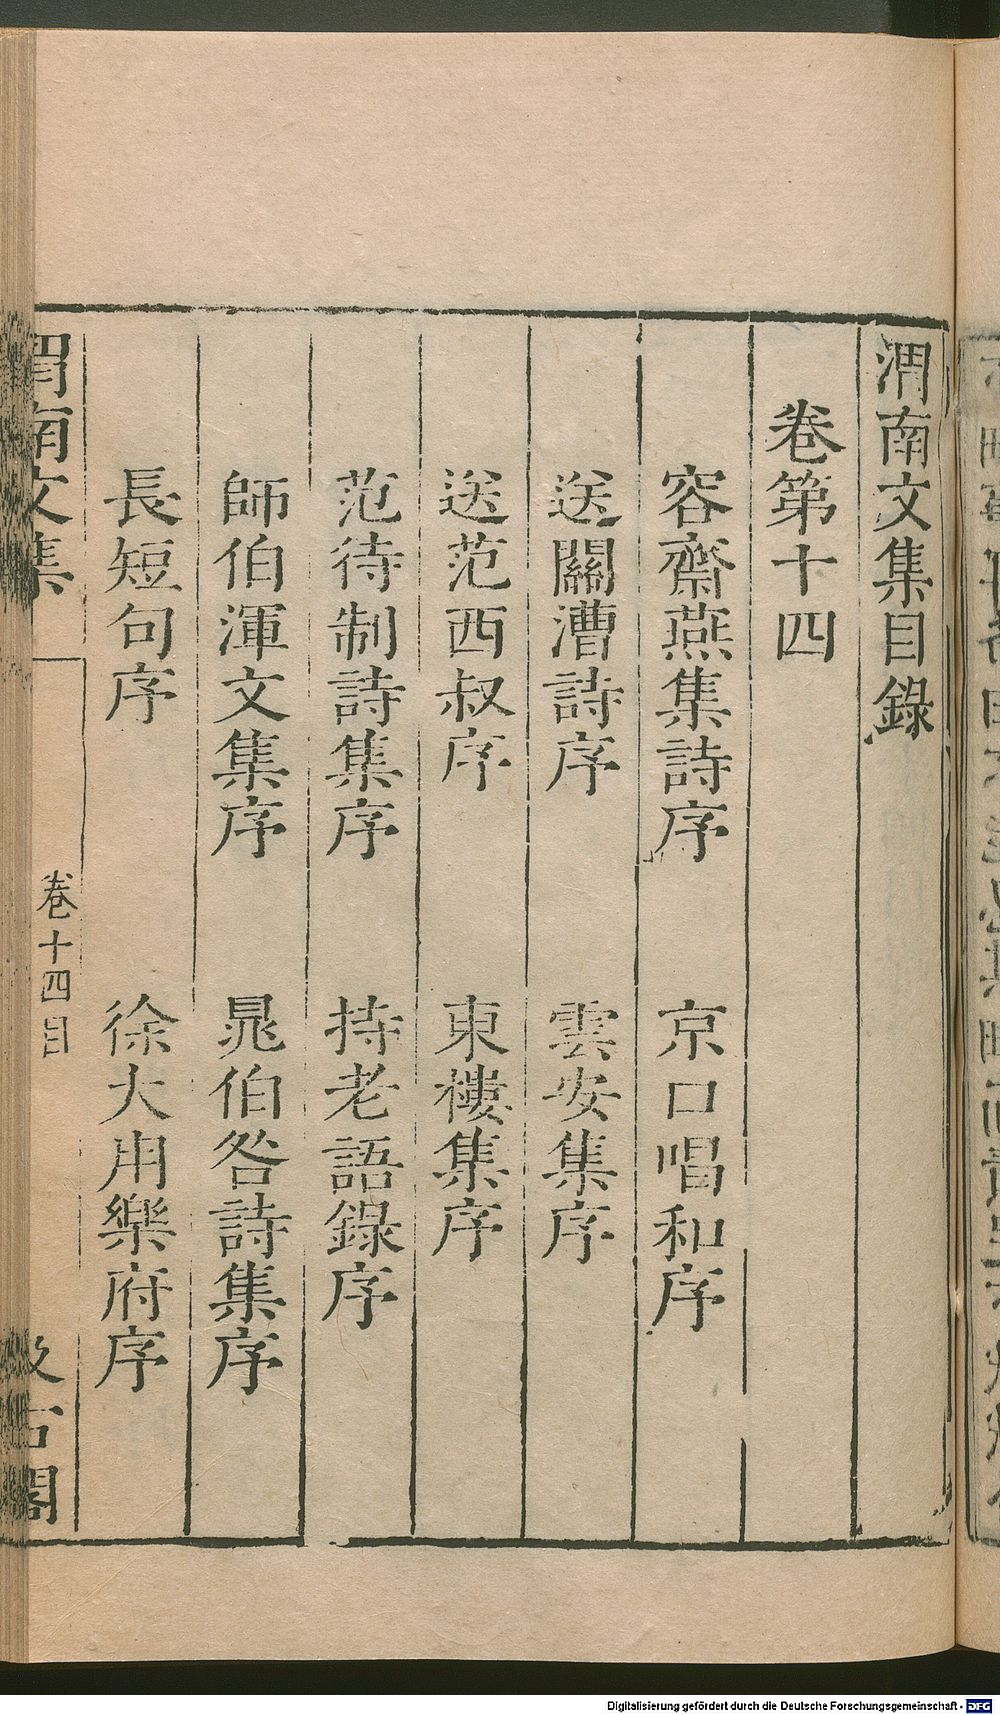 渭南文集目錄
卷第十四
容齋燕集詩序 京口唱和序
送關漕詩序 雲安集序
送范西叔序 東樓集序
范待制詩集序 持老語錄序
師伯渾文集序 晁伯咎詩集序
長短句序 徐大用樂府序
渭南文集 卷十四目 汲古閣
Digitalisierung gefördert durch die Deutsche Forschungsgemeinschaft - DFG